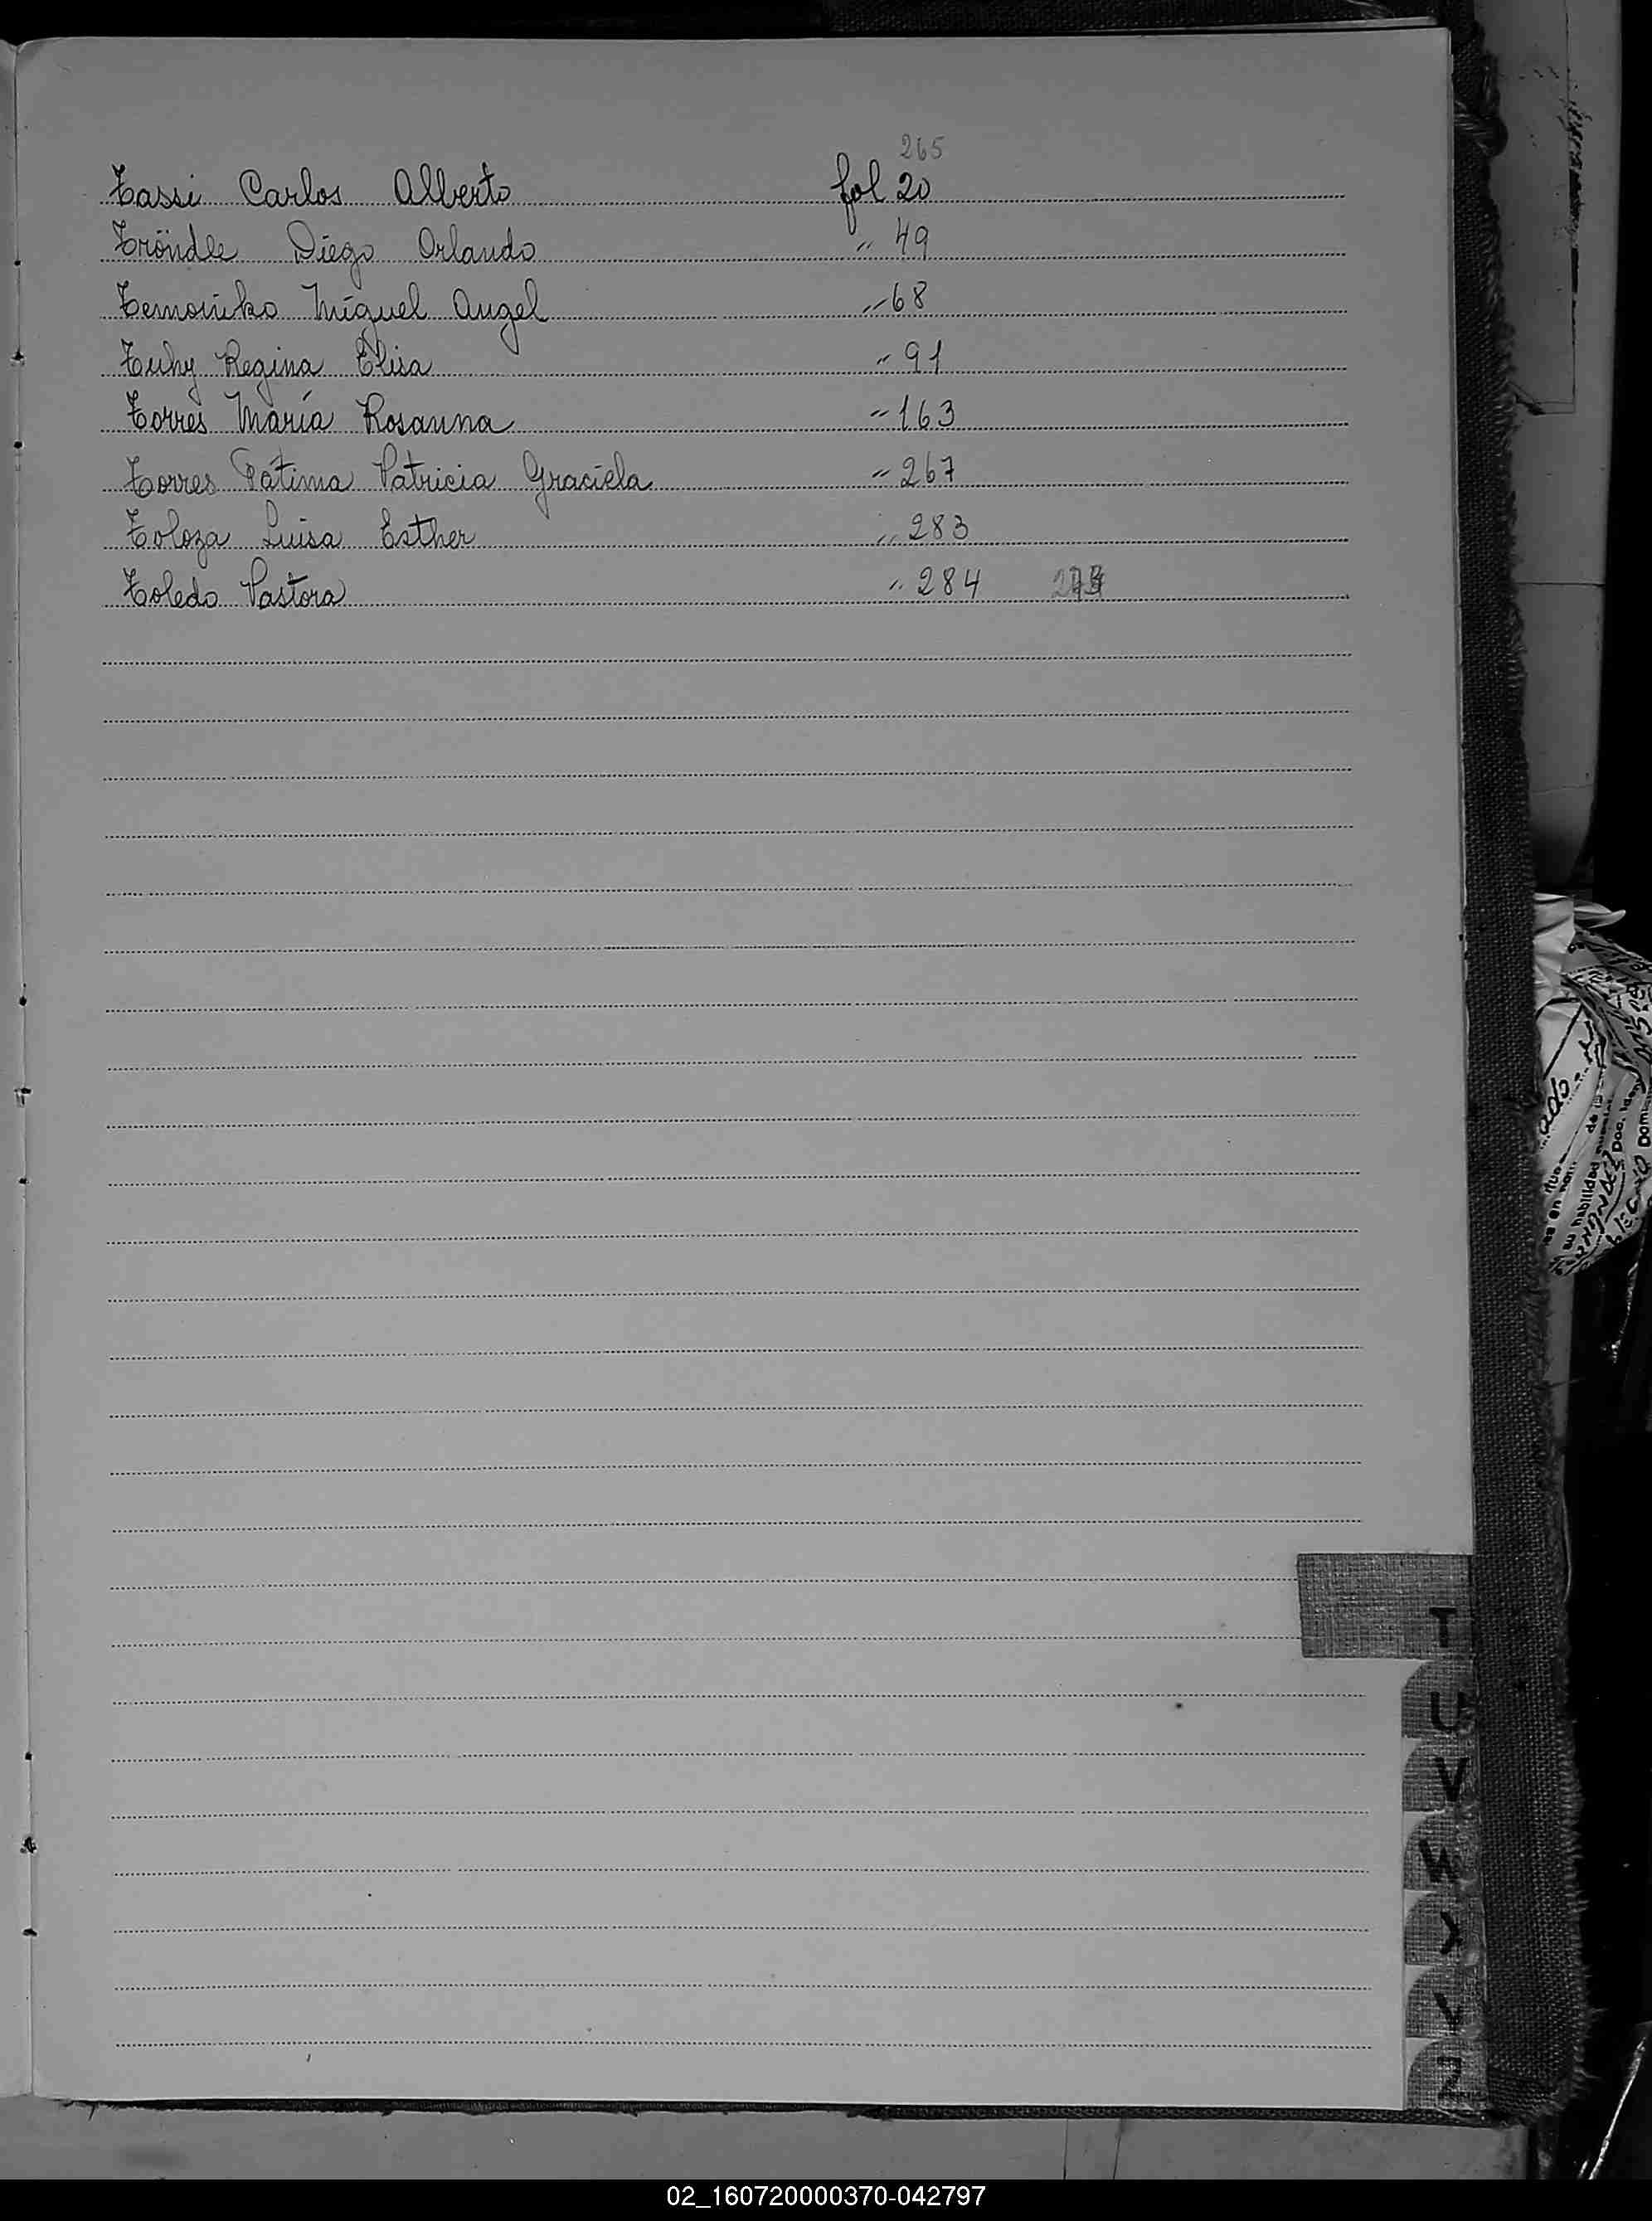 265
Tassi Carlos Alberto fol 20
Tröndle Diego Orlando " 49
Miguel Angel " 68
Tuhy Regina Elisa " 91
Torres María Rosanna " 163
Torres Fátima Patricia Graciela " 267
Toloza Luisa Esther " 283
Toledo Pastora " 284
T
U
V
X
Y
Z
02_160720000370-042797